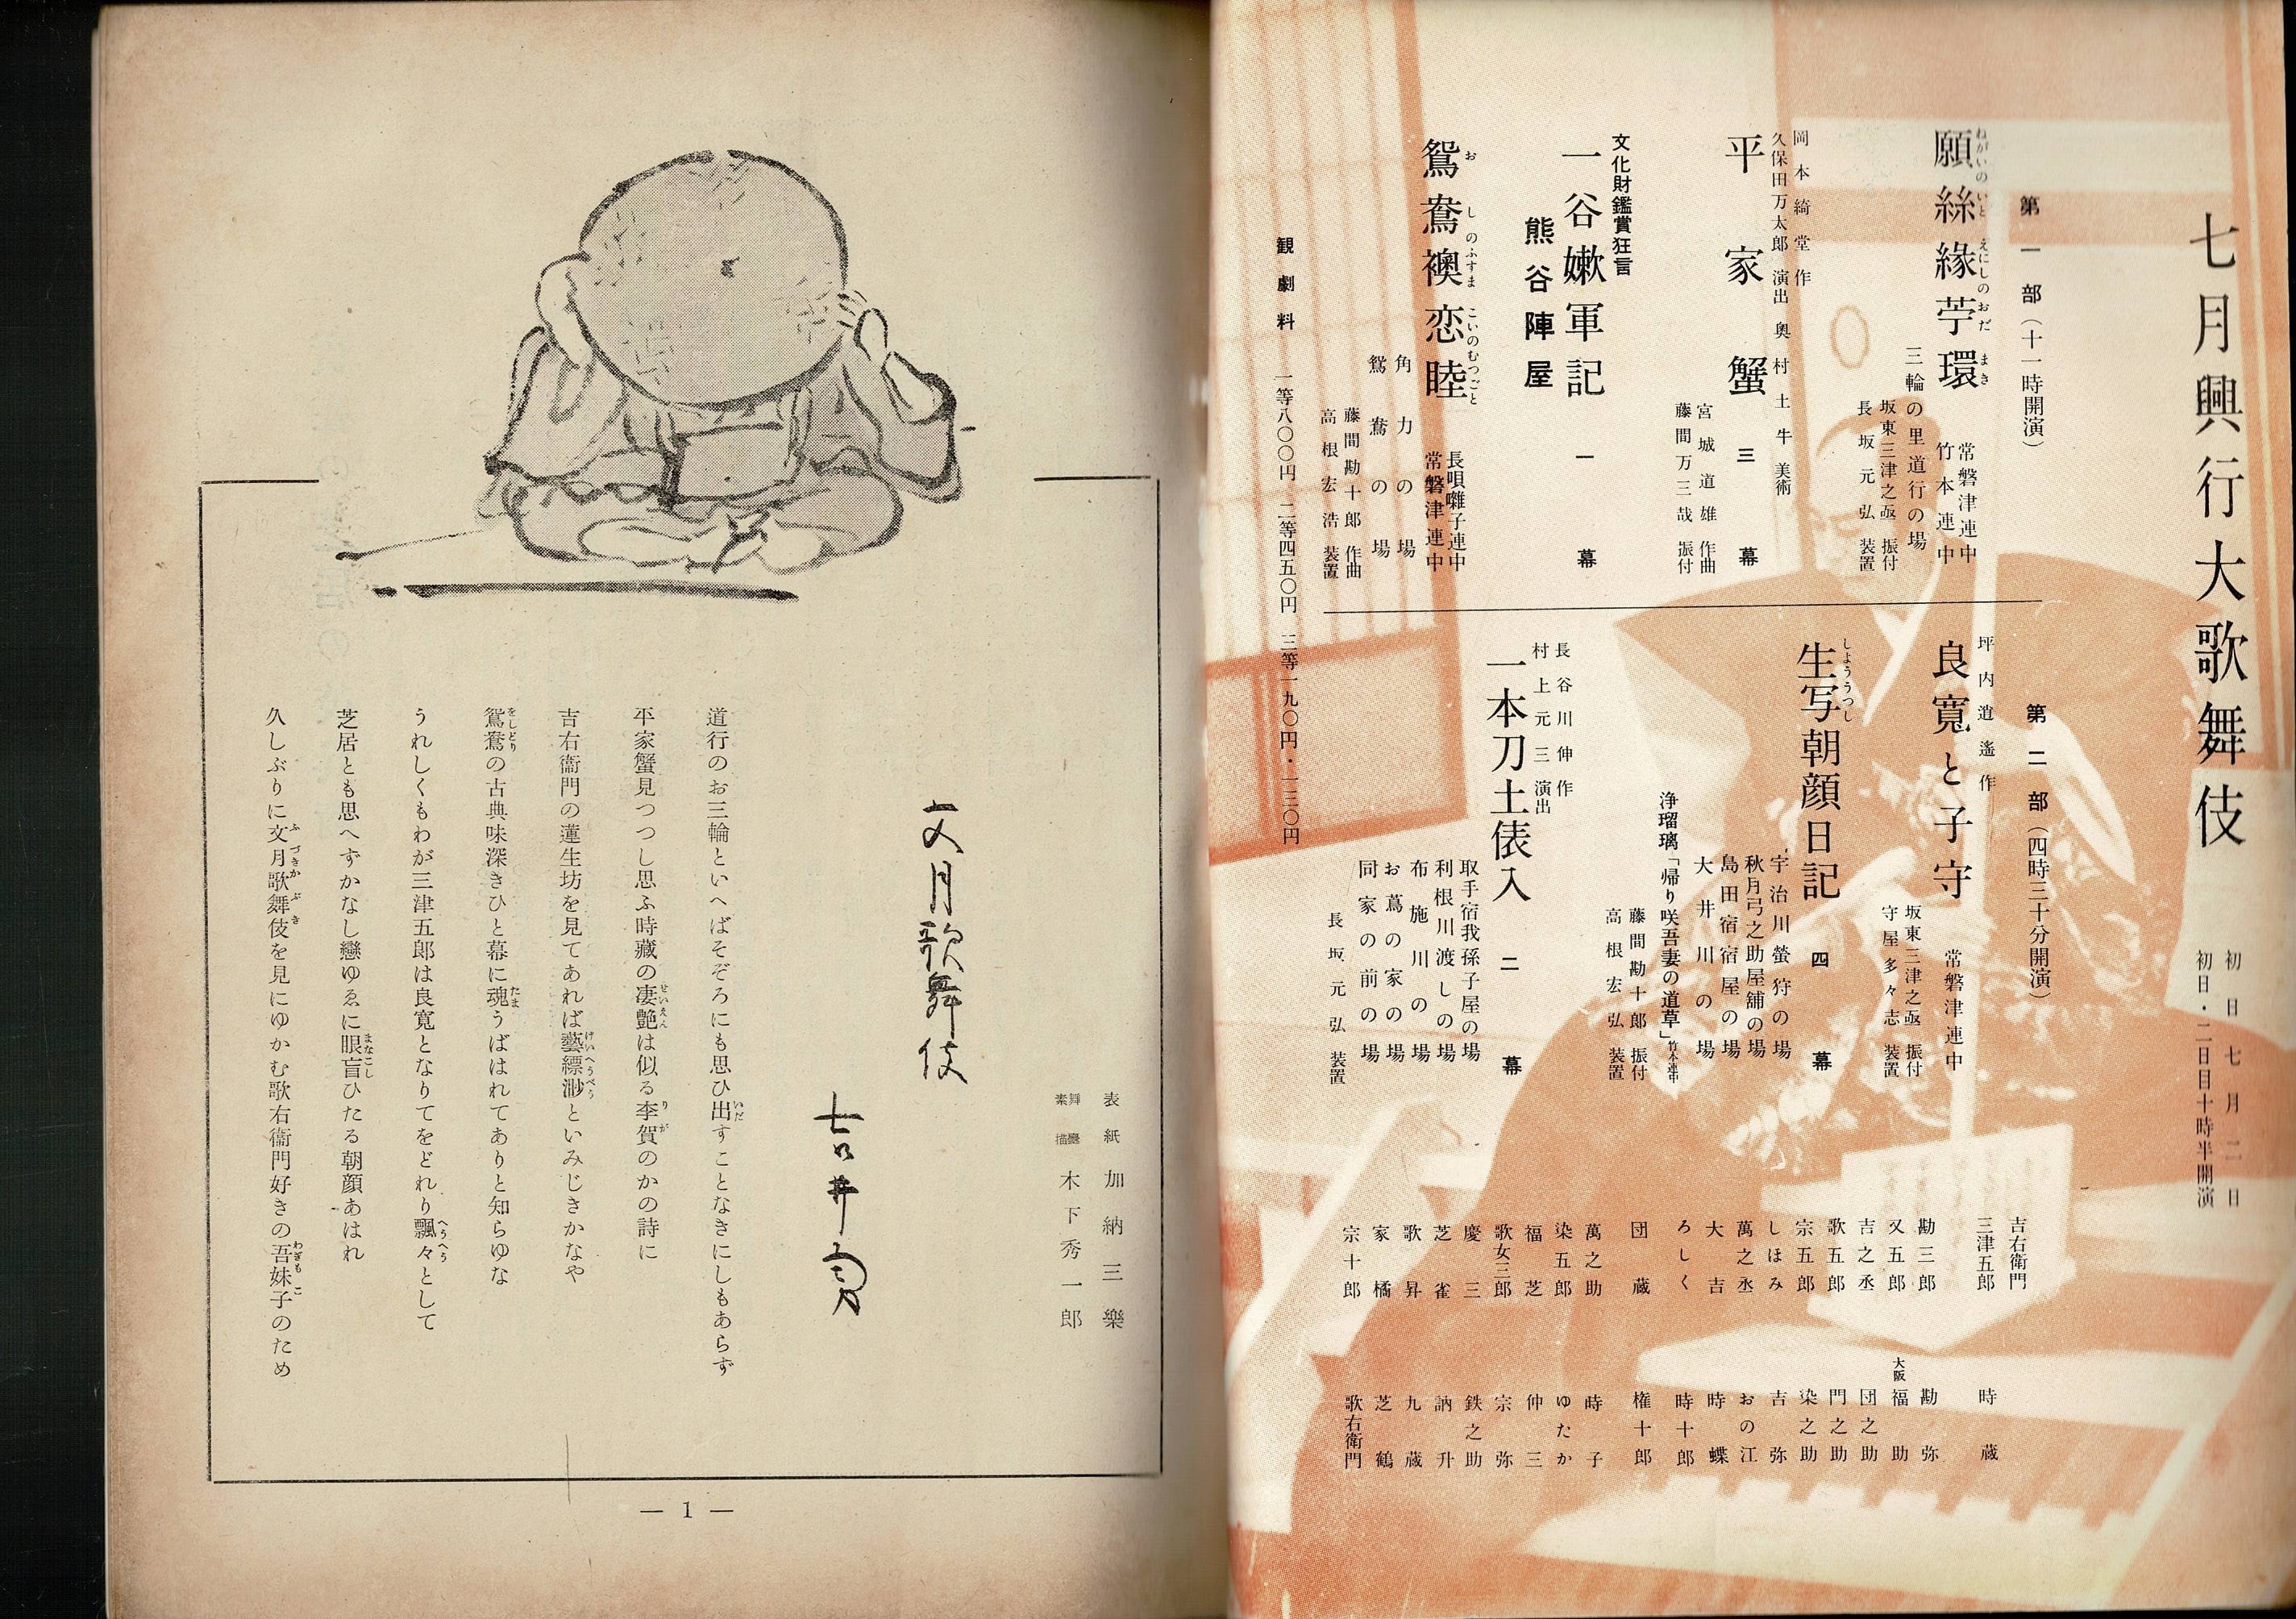 七月興行大歌舞伎
初日七月二日
初日・二日目十時半開演
第一部(十一時開演)
願絲緣苧環
ねがいのいとえにしのおだまき
常磐津連中
竹本連中
三輪の里道行の場
坂東三津之亟 振付
長坂元弘 装置
岡本綺堂 作
久保田万太郎 演出
奥村土牛 美術
平家蟹 三幕
宮城道雄 作曲
藤間万三哉 振付
文化財鑑賞狂言
一谷嫩軍記 一幕
熊谷陣屋
鴛鴦襖恋睦
おしのふすまこいのむつごと
長唄囃子連中
常磐津連中
角力の場
鴛鴦の場
藤間勘十郎 作曲
高根宏浩 装置
観劇料 一等八〇〇円 二等四五〇円 三等一九〇円・一三〇円
第二部(四時三十分開演)
坪内逍遙 作
良寛と子守
常磐津連中
坂東三津之亟 振付
守屋多々志 装置
生写朝顔日記 四幕
しょううつし
宇治川螢狩の場
秋月弓之助屋舗の場
島田宿宿屋の場
大井川の場
浄瑠璃「帰り咲吾妻の道草」竹本連中
藤間勘十郎 振付
高根宏弘 装置
長谷川伸 作
村上元三 演出
一本刀土俵入 二幕
取手宿我孫子屋の場
利根川渡しの場
布施川の場
お蔦の家の場
同家の前の場
長坂元弘 装置
吉右衛門
三津五郎
勘三郎
又五郎
吉之丞
歌五郎
宗五郎
しほみ
萬之丞
大吉
ろしく
団蔵
萬之助
染五郎
福芝
歌女三郎
慶三
芝雀
歌昇
家橘
宗十郎
時蔵
勘弥
大阪 福助
団之助
門之助
染之助
吉弥
おの江
時蝶
時十郎
権十郎
時子
ゆたか
仲三
宗弥
鉄之助
訥升
九蔵
芝鶴
歌右衛門
表紙 加納三樂
舞臺素描 木下秀一郎
文月歌舞伎
吉井勇
道行のお三輪といへばそぞろにも思ひ出すことなきにしもあらず
いだ
平家蟹見つつし思ふ時藏の凄艶は似る李賀のかの詩に
せいえん りが
吉右衞門の蓮生坊を見てあれば藝縹渺といみじきかなや
げいへうべう
鴛鴦の古典味深きひと幕に魂うばはれてありと知らゆな
をしどり たま
うれしくもわが三津五郎は良寛となりてをどれり飄々として
へうへう
芝居とも思へずかなし戀ゆゑに眼盲ひたる朝顔あはれ
まなこし
久しぶりに文月歌舞伎を見にゆかむ歌右衞門好きの吾妹子のため
ふづきかぶき わぎもこ
— 1 —